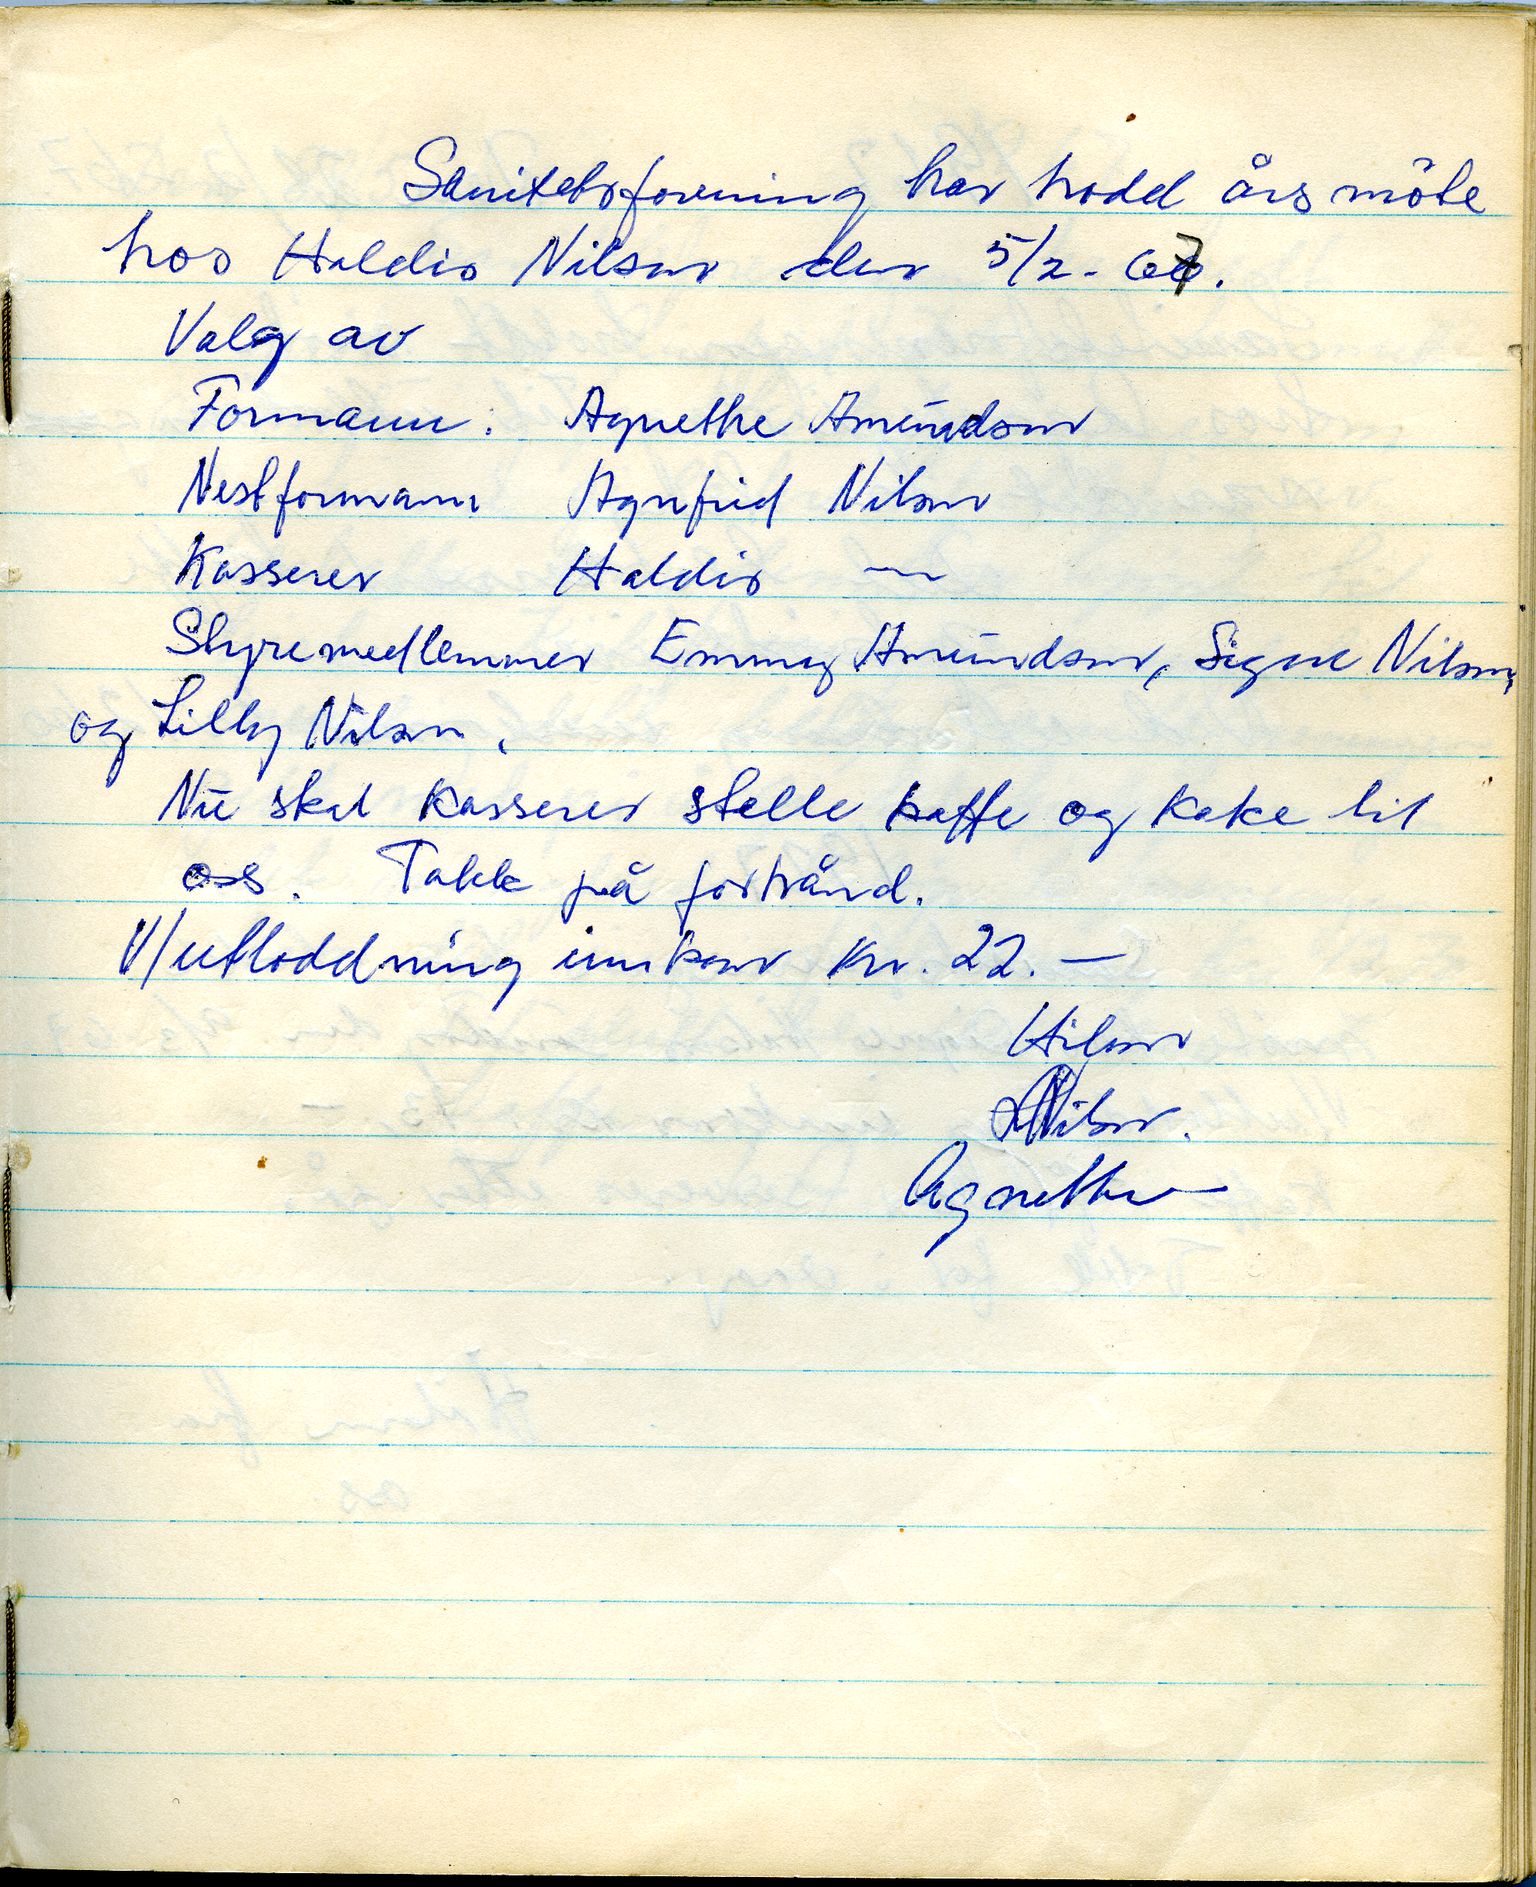 Sanitetsforening har hodd års möte
hos Haldis Nilsen den 5/2-67.
Valg av
Formann: Agnethe Amundsen
Nestformann Agnfrid Nilsen
Kasserer Haldis —
Styremedlemmer Emmy Amundsen, Signe Nilsen,
og Lilly Nilsen.
Nu skal kasserer stelle kaffe og kake til
oss. Takk på forhånd.
V/utloddning innkom kr. 22.—
Hilsen
LNilsen.
Agnethe